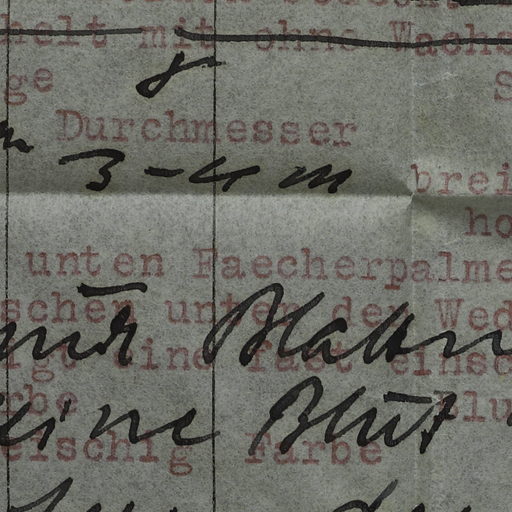 helt mit ohne Wachs
ge S
Durchmesser
3-4 m brei
ho
unten Faecherpalme
schen unten den Wed
nur Blatt
igt sind fast einse
rbe Blu
eine Blüt
eischig Farbe